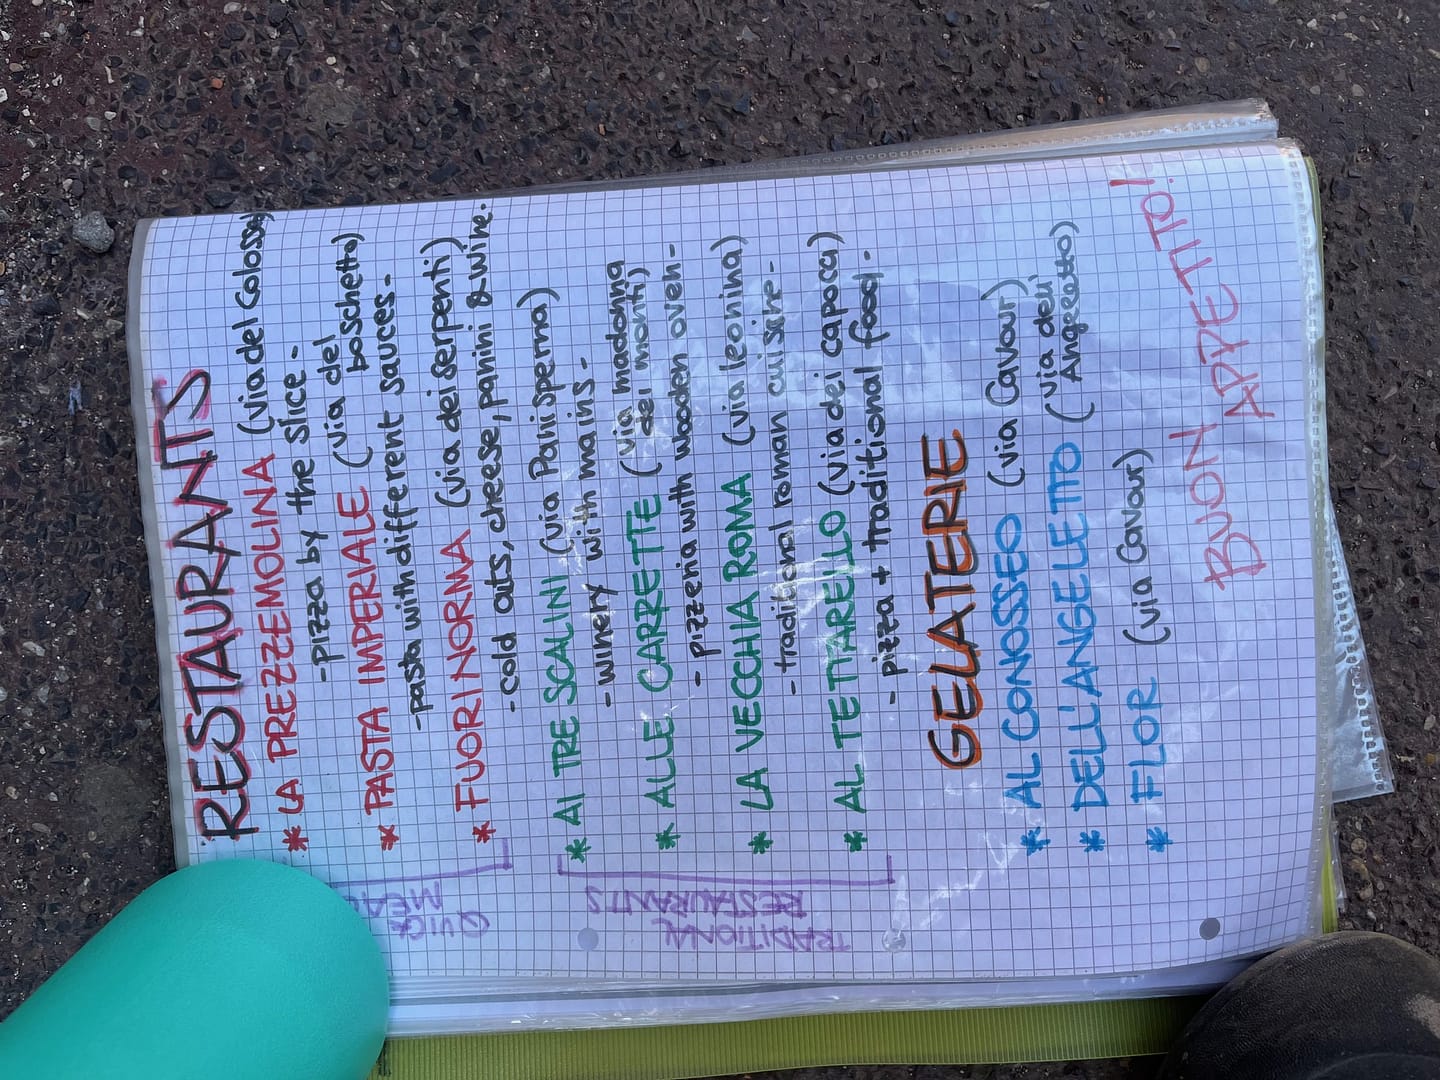 RESTAURANTS
* LA PREZZEMOLINA (via del Colosseo)
- pizza by the slice -
* PASTA IMPERIALE (via del
boschetto)
- pasta with different sauces -
* FUORI NORMA (via dei serpenti)
- cold cuts, cheese, panini & wine.
QUICK
MEALS
* AI TRE SCALINI (via Panisperna)
- winery with mains -
* ALLE CARRETTE (via madonna
dei monti)
- pizzeria with wooden oven -
* LA VECCHIA ROMA (via leonina)
- traditional roman cuisine -
* AL TETTARELLO (via dei capocci)
- pizza + traditional food -
TRADITIONAL
RESTAURANTS
GELATERIE
* AL CONOSSEO (via Cavour)
* DELL'ANGELETTO (via dell'
Angeletto)
* FLOR (via Cavour)
BUON APPETITO!